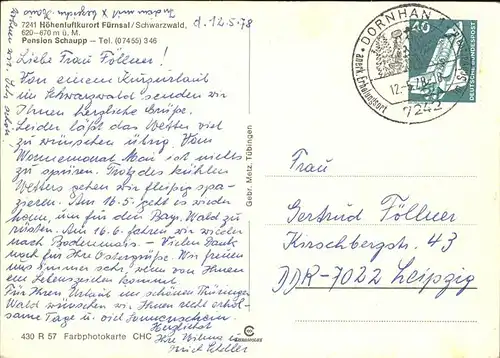 In dem mit X bezeichn. Haus
d. 12.5.78
7241 Höhenluftkurort Fürnsal/Schwarzwald,
620–870 m ü. M.
Pension Schaupp – Tel. (07455) 346
Liebe Frau Föllner!
Von einem Kurzurlaub
im Schwarzwald senden wir
Ihnen herzliche Grüße.
Leider läßt das Wetter viel
zu wünschen übrig. Vom
Wonnemonat Mai ist nichts
zu spüren. Trotz des kühlen
Wetters gehen wir fleißig spa-
zieren. Am 16.5. geht es wieder
heim, um für den Bay. Wald zu
rüsten. Am 16.6. fahren wir wieder
nach Bodenmais – Vielen Dank
noch für Ihre Ostergrüße. Wir freuen
uns immer sehr, wenn von Ihnen
ein Lebenszeichen kommt.
Für Ihren Urlaub im schönen Thüringer
Wald wünschen wir Ihnen recht erhol-
same Tage u. viel Sonnenschein.
Herzlichst
Ihre Wilma u.
430 R 57 Farbphotokarte CHC
Gebr. Metz, Tübingen
DORNHAN
anerk. Erholungsort
12.-5.78
7242
40
DEUTSCHE BUNDESPOST
Frau
Gertrud Föllner
Kirschbergstr. 43
DDR-7022 Leipzig